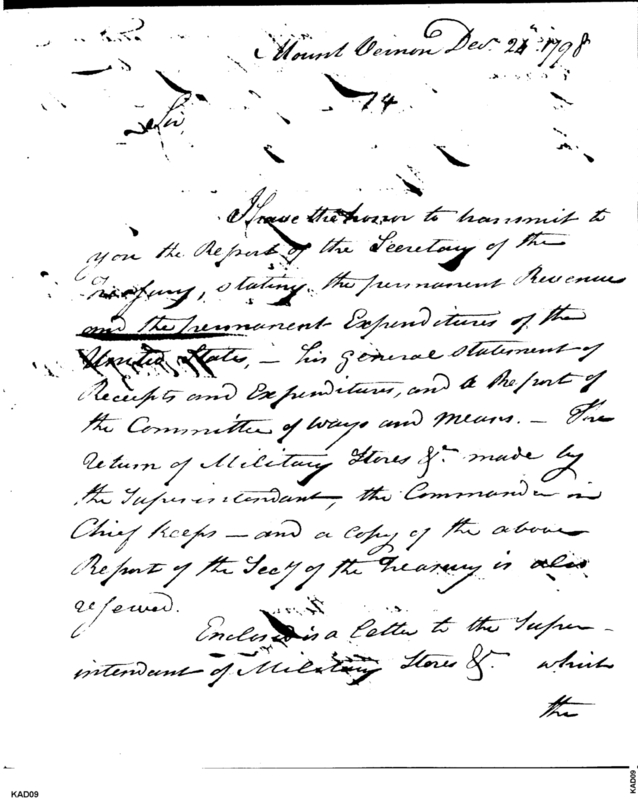 Mount Vernon Decr. 24th 1798
74
Sir
I have the honor to transmit to
you the Report of the Secretary of the
Treasury, stating the permanent Revenue
and the permanent Expenditures of the
United States, – his general statement of
Receipts and Expenditures, and a Report of
the Committee of ways and means. – The
return of Military Stores &c. made by
the Superintendant, the Commander in
Chief keeps – and a copy of the above
Report of the Secy of the Treasury is also
reserved.
Enclosed is a letter to the Super-
intendant of Military Stores &c. which
the
KAD09
KAD09